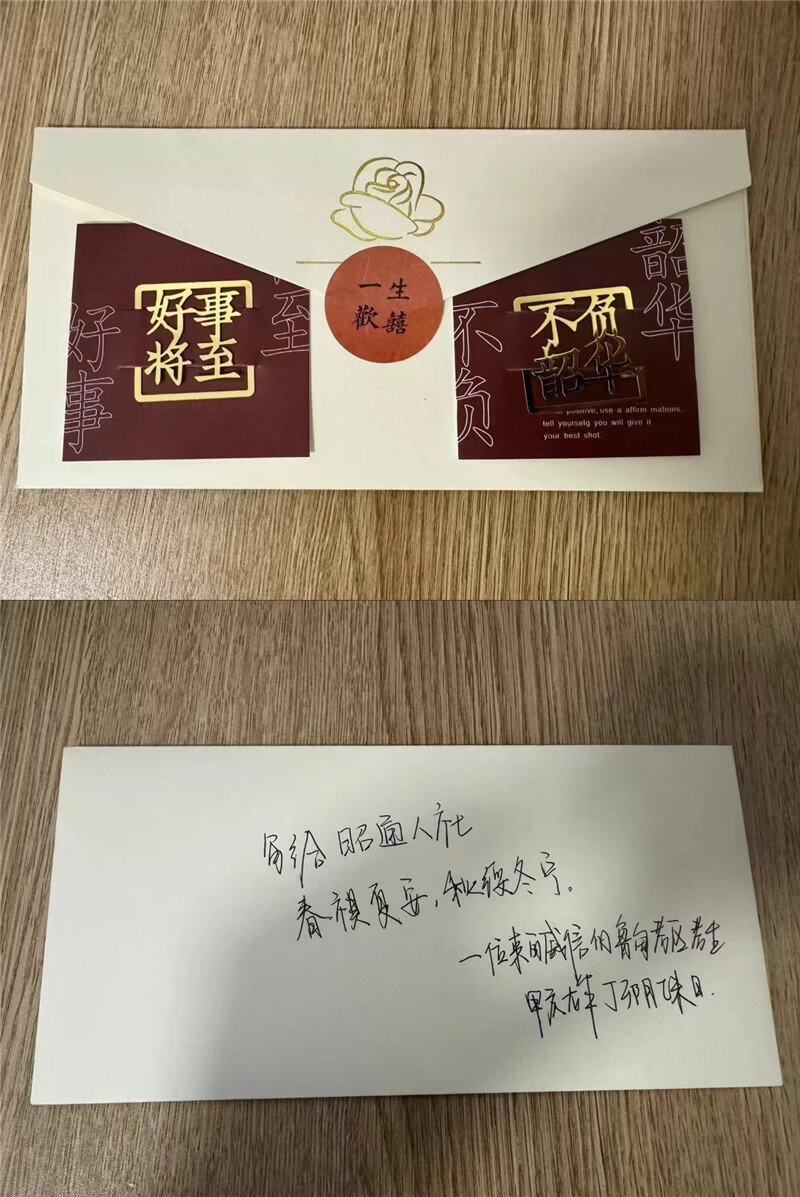 好事
将至
好事
至
一生
歡囍
不负
韶华
不负
韶华
positive, use a affirm mations.
tell yourselg you will give it
your best shot.
写给昭通人社
春祺夏安,秋绥冬宁。
一位来自威信的鲁甸考区考生
甲辰龙年丁卯月乙未日.